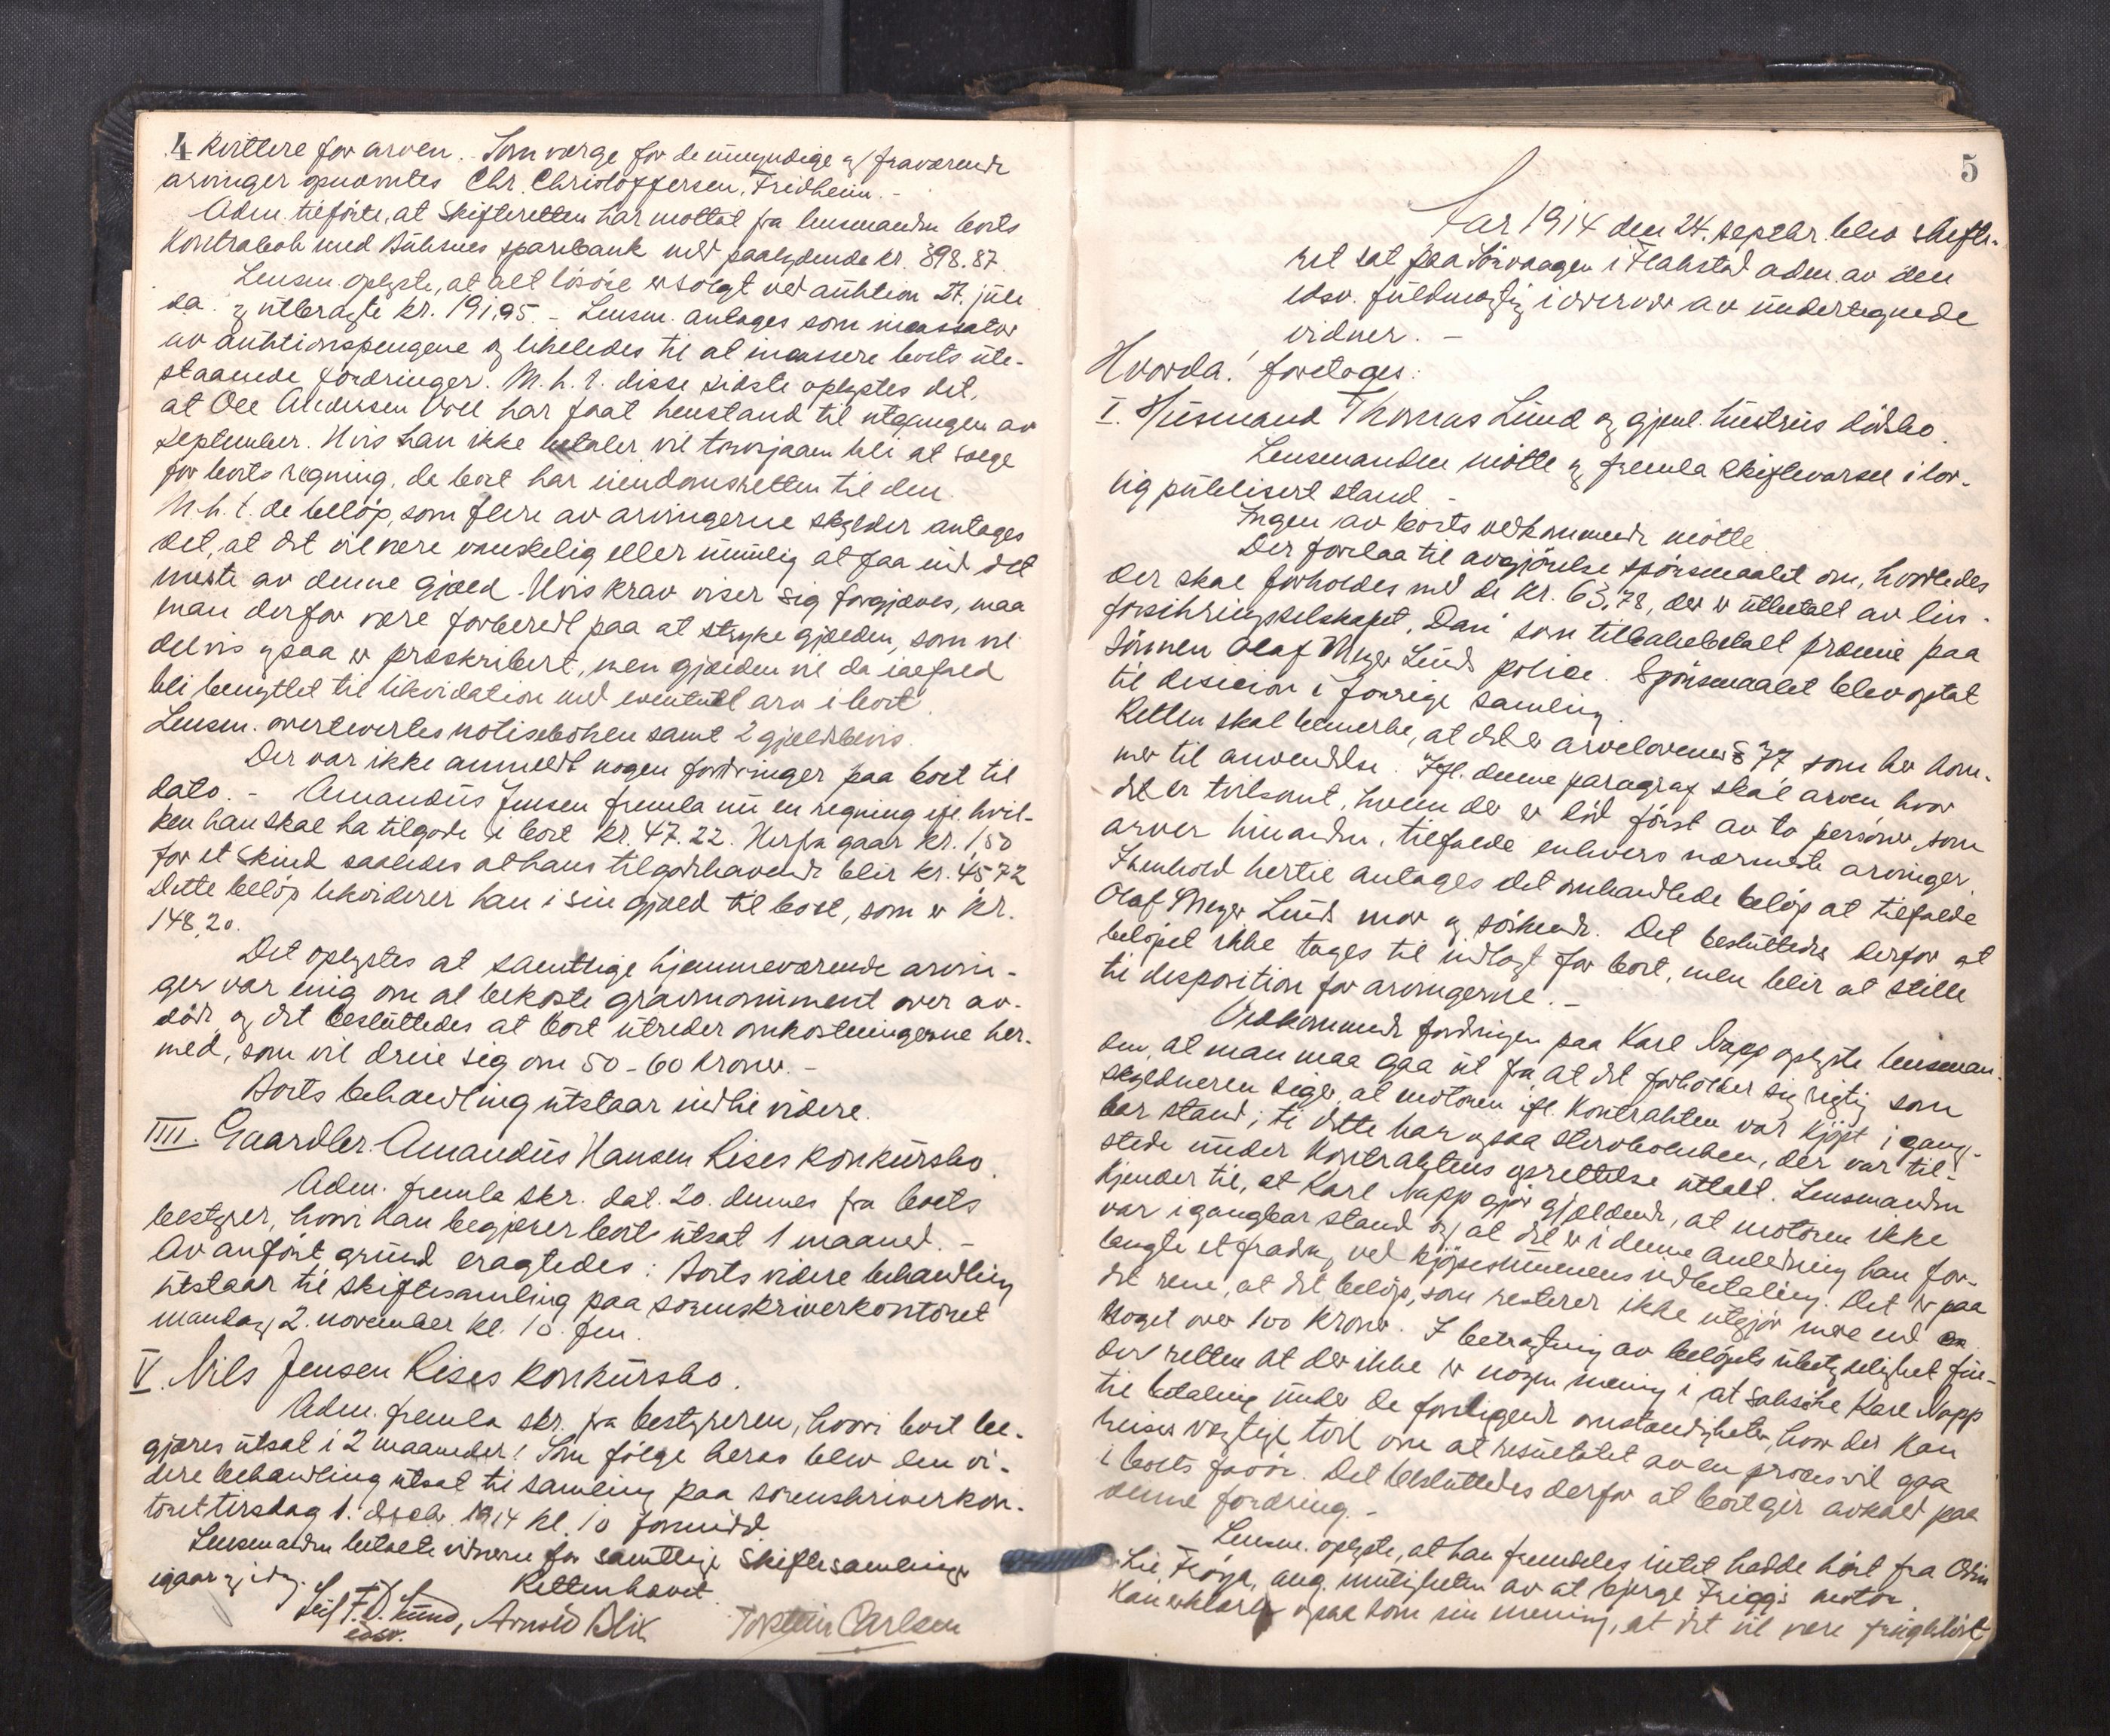 4 kvittere for arven. Som værge for de umyndige og fraværende
arvinger opnævntes Chr. Christoffersen, Fridheim. -
Adm. tilførte, at Skifteretten har mottat fra lensmanden boets
Kontrabok med Buksnes sparebank med paalydende kr. 398.87.
Lensm. oplyste, at alt løsøre er solgt ved auktion 27. juli
da. og utbragte kr. 191,95. - Lensm. antages som incassator
av auktionspengene og likeledes til at incassere boets ute-
staaende fordringer. M.h.t. disse sidste oplystes det,
at Ole Andersen Voll har faat henstand til utgangen av
september. Hvis han ikke betaler vil bli at sælge
for boets regning, da boet har eiendomsretten til den.
M.h.t. de beløp, som flere av arvingerne skylder antages
det, at det vil være vanskelig eller umulig at faa ind det
meste av denne gjæld. Hvis krav viser sig forgjæves, maa
man derfor være forberedt paa at stryke gjælden, som vel
delvis ogsaa er præskribert, men gjælden vil da ialfald
bli benyttet til likvidation med eventuell arv i boet.
Lensm. overleveredes notisboken samt 2 gjældsbevis.
Der var ikke anmeldt nogen fordringer paa boet til
dato. - Amandus Jensen fremla nu en regning ifl. hvil-
ken han skal ha tilgode i boet kr. 47.22. Herfra gaar kr. 1,50
for et Skind saaledes at hans tilgodehavende blir kr. 45,72
Dette beløp likviderer han i sin gjæld til boet, som er kr.
148,20.
Det oplystes at samtlige hjemmeværende arvin-
ger var enig om at bekoste gravmonument over av-
døde og det besluttedes at boet utreder omkostningerne her-
med, som vil dreie sig om 50-60 kroner. -
Boets behandling utstaar indtil videre.
IIII. Gaardbr. Amandus Hansen Rises konkursbo.
Adm. fremla skr. dat. 20. dennes fra boets
bestyrer, hvori han begjærer boet utsat 1 maaned. -
Av anført grund eragtedes: Boets videre behandling
utstaar til skiftesamling paa sorenskriverkontoret
mandag 2. november kl. 10 fm.
V. Nils Jensen Rises konkursbo.
Adm. fremla skr. fra bestyreren, hvori boet be-
gjæres utsat i 2 maaneder. Som følge herav blev den vi-
dere behandling utsat til samling paa sorenskriverkon-
toret tirsdag 1. decbr. 1914 kl. 10 formidd.
Lensmanden betalte vidnerne for samtlige Skiftesamlinger
igaar og idag. Retten hævet.
Leif F.D. Lund, Arnold Blix Torstein Carlsen
edsv.
5
Aar 1914 den 24. septbr. blev skifte-
ret sat paa Sørvaagen i Flakstad adm. av den
edsv. fuldmægtig i overvær av undertegnede
vidner. -
Hvorda! foretoges:
I. Husmand Thomas Lund og gjenl. hustrus dødsbo.
Lensmanden møtte og fremla skiftevarsel i lov-
lig publisert stand -
Ingen av boets vedkommende møtte.
Der forelaa til avgjørelse spørsmaalet om, hvorledes
der skal forholdes med de kr. 63,78, der er utbetalt av livs-
forsikringsselskapet "Dan" som tilbakebetalt præmie paa
sønnen Olaf Meyer Lunds police. Spørsmaalet blev optat
til desicion i forrige samling.
Retten skal bemerke, at det er arvelovens § 77 som her kom-
mer til anvendelse. Ifl. denne paragraf skal arven hvor
det er tvilsomt, hvem der er død først av to personer, som
arver hinanden, tilfalde enhvers nærmeste arvinger.
I henhold hertil antages det omhandlede beløp at tilfalde
Olaf Meyer Lunds mor og søskende. Det besluttedes derfor at
beløpet ikke tages til indtægt for boet, men blir at stille
til disposition for arvingerne. -
Vedkommende fordringen paa Karl Napp oplyste lensman-
den, at man maa gaa ut fra at det forholder sig rigtig som
skyldneren siger, at motoren ifl. Kontrakten var kjøpt i gang-
bar stand; ti dette har ogsaa der var til-
stede under Kontraktens oprettelse uttalt. Lensmanden
kjender til, at Karl Napp gjør gjældende, at motoren ikke
var i gangbar stand og at det er i denne anledning han for-
langte et fradrag ved kjøpesummens indbetaling. Det er paa
det rene, at det beløp, som resterer ikke utgjør mere end
noget over 100 kroner. I betragtning av beløpets ubetydelighet fin-
der retten at der ikke er nogen mening i at saksøke Karl Napp
til betaling under de foreliggende omstændigheter, hvor der kan
reises vægtige tvil om at resultatet av en proces vil gaa
i boets favør. Det besluttedes derfor at boet gir avkald paa
denne fordring. -
Lensm. oplyste, at han fremdeles intet hadde hørt fra Odin
Lie, Frøya, ang. muligheten av at bjerge Friggs motor.
Han erklærte ogsaa som sin mening, at det vil være frugtesløst